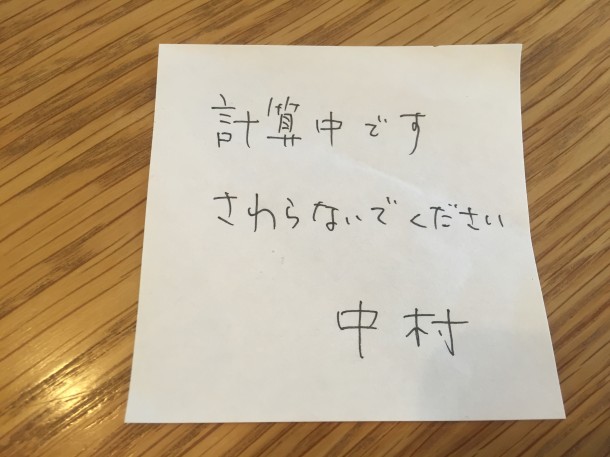 計算中です
さわらないでください
中村